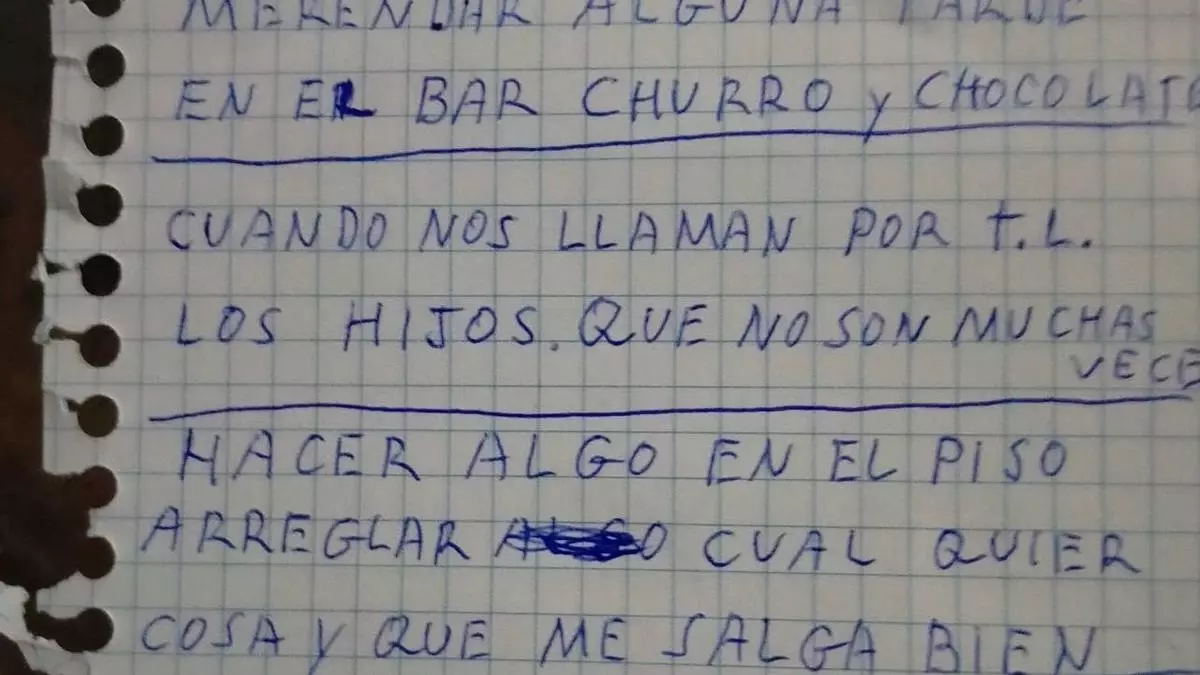 MERENDAR ALGUNA TARDE
EN EL BAR CHURRO Y CHOCOLATE
CUANDO NOS LLAMAN POR T.L.
LOS HIJOS. QUE NO SON MUCHAS
VECE
HACER ALGO EN EL PISO
ARREGLAR CUAL QUIER
COSA Y QUE ME SALGA BIEN